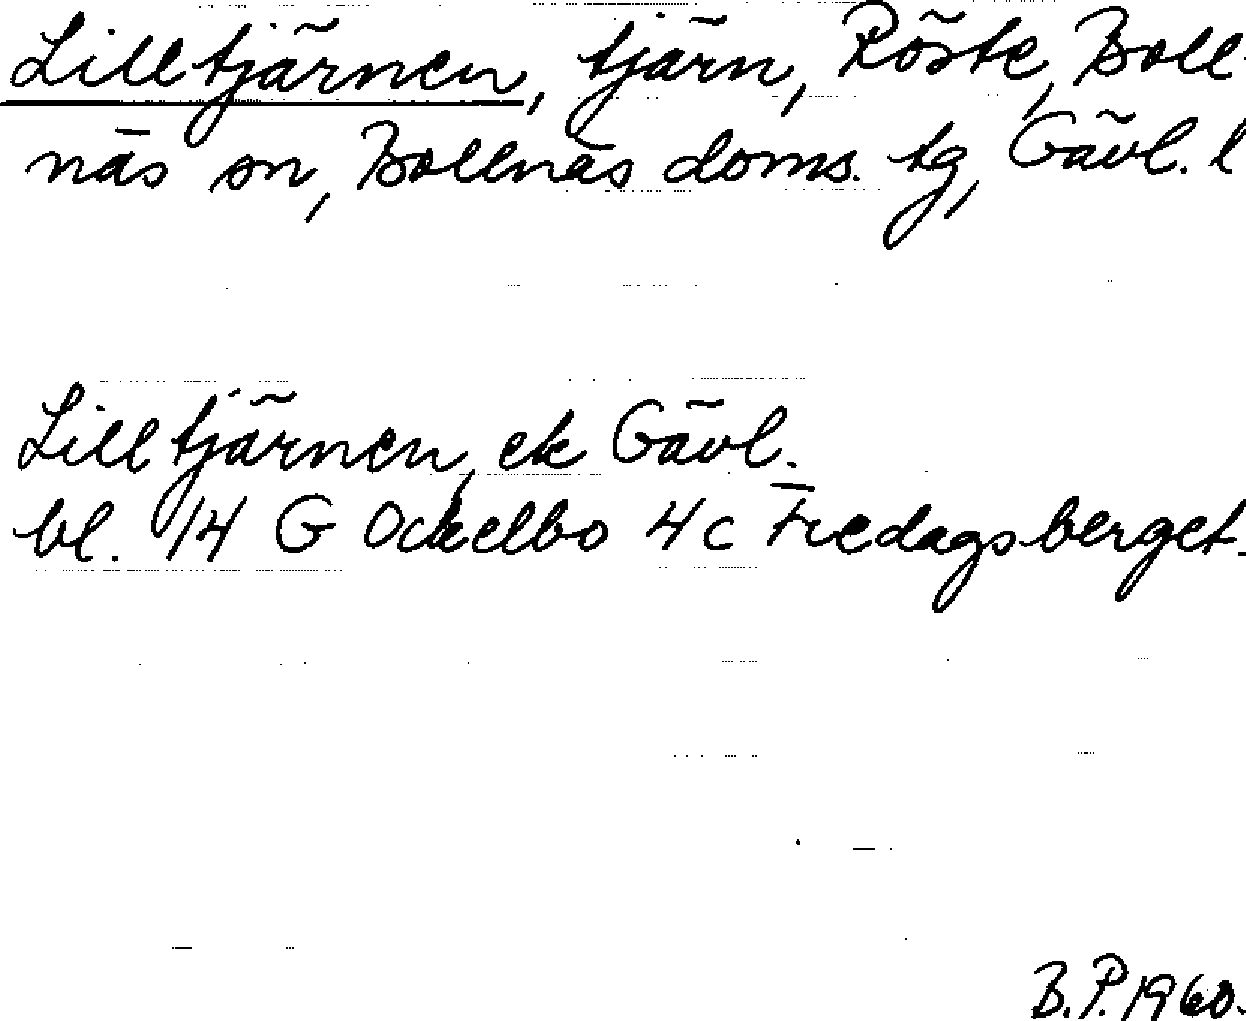 Lilltjärnen, tjärn, Röste, Boll-
näs sn, Bollnäs doms. tg, Gävl. l
Lilltjärnen, ek Gävl.
bl. 14 G Ockelbo 4c Fredagsberget.
B.P. 1960.